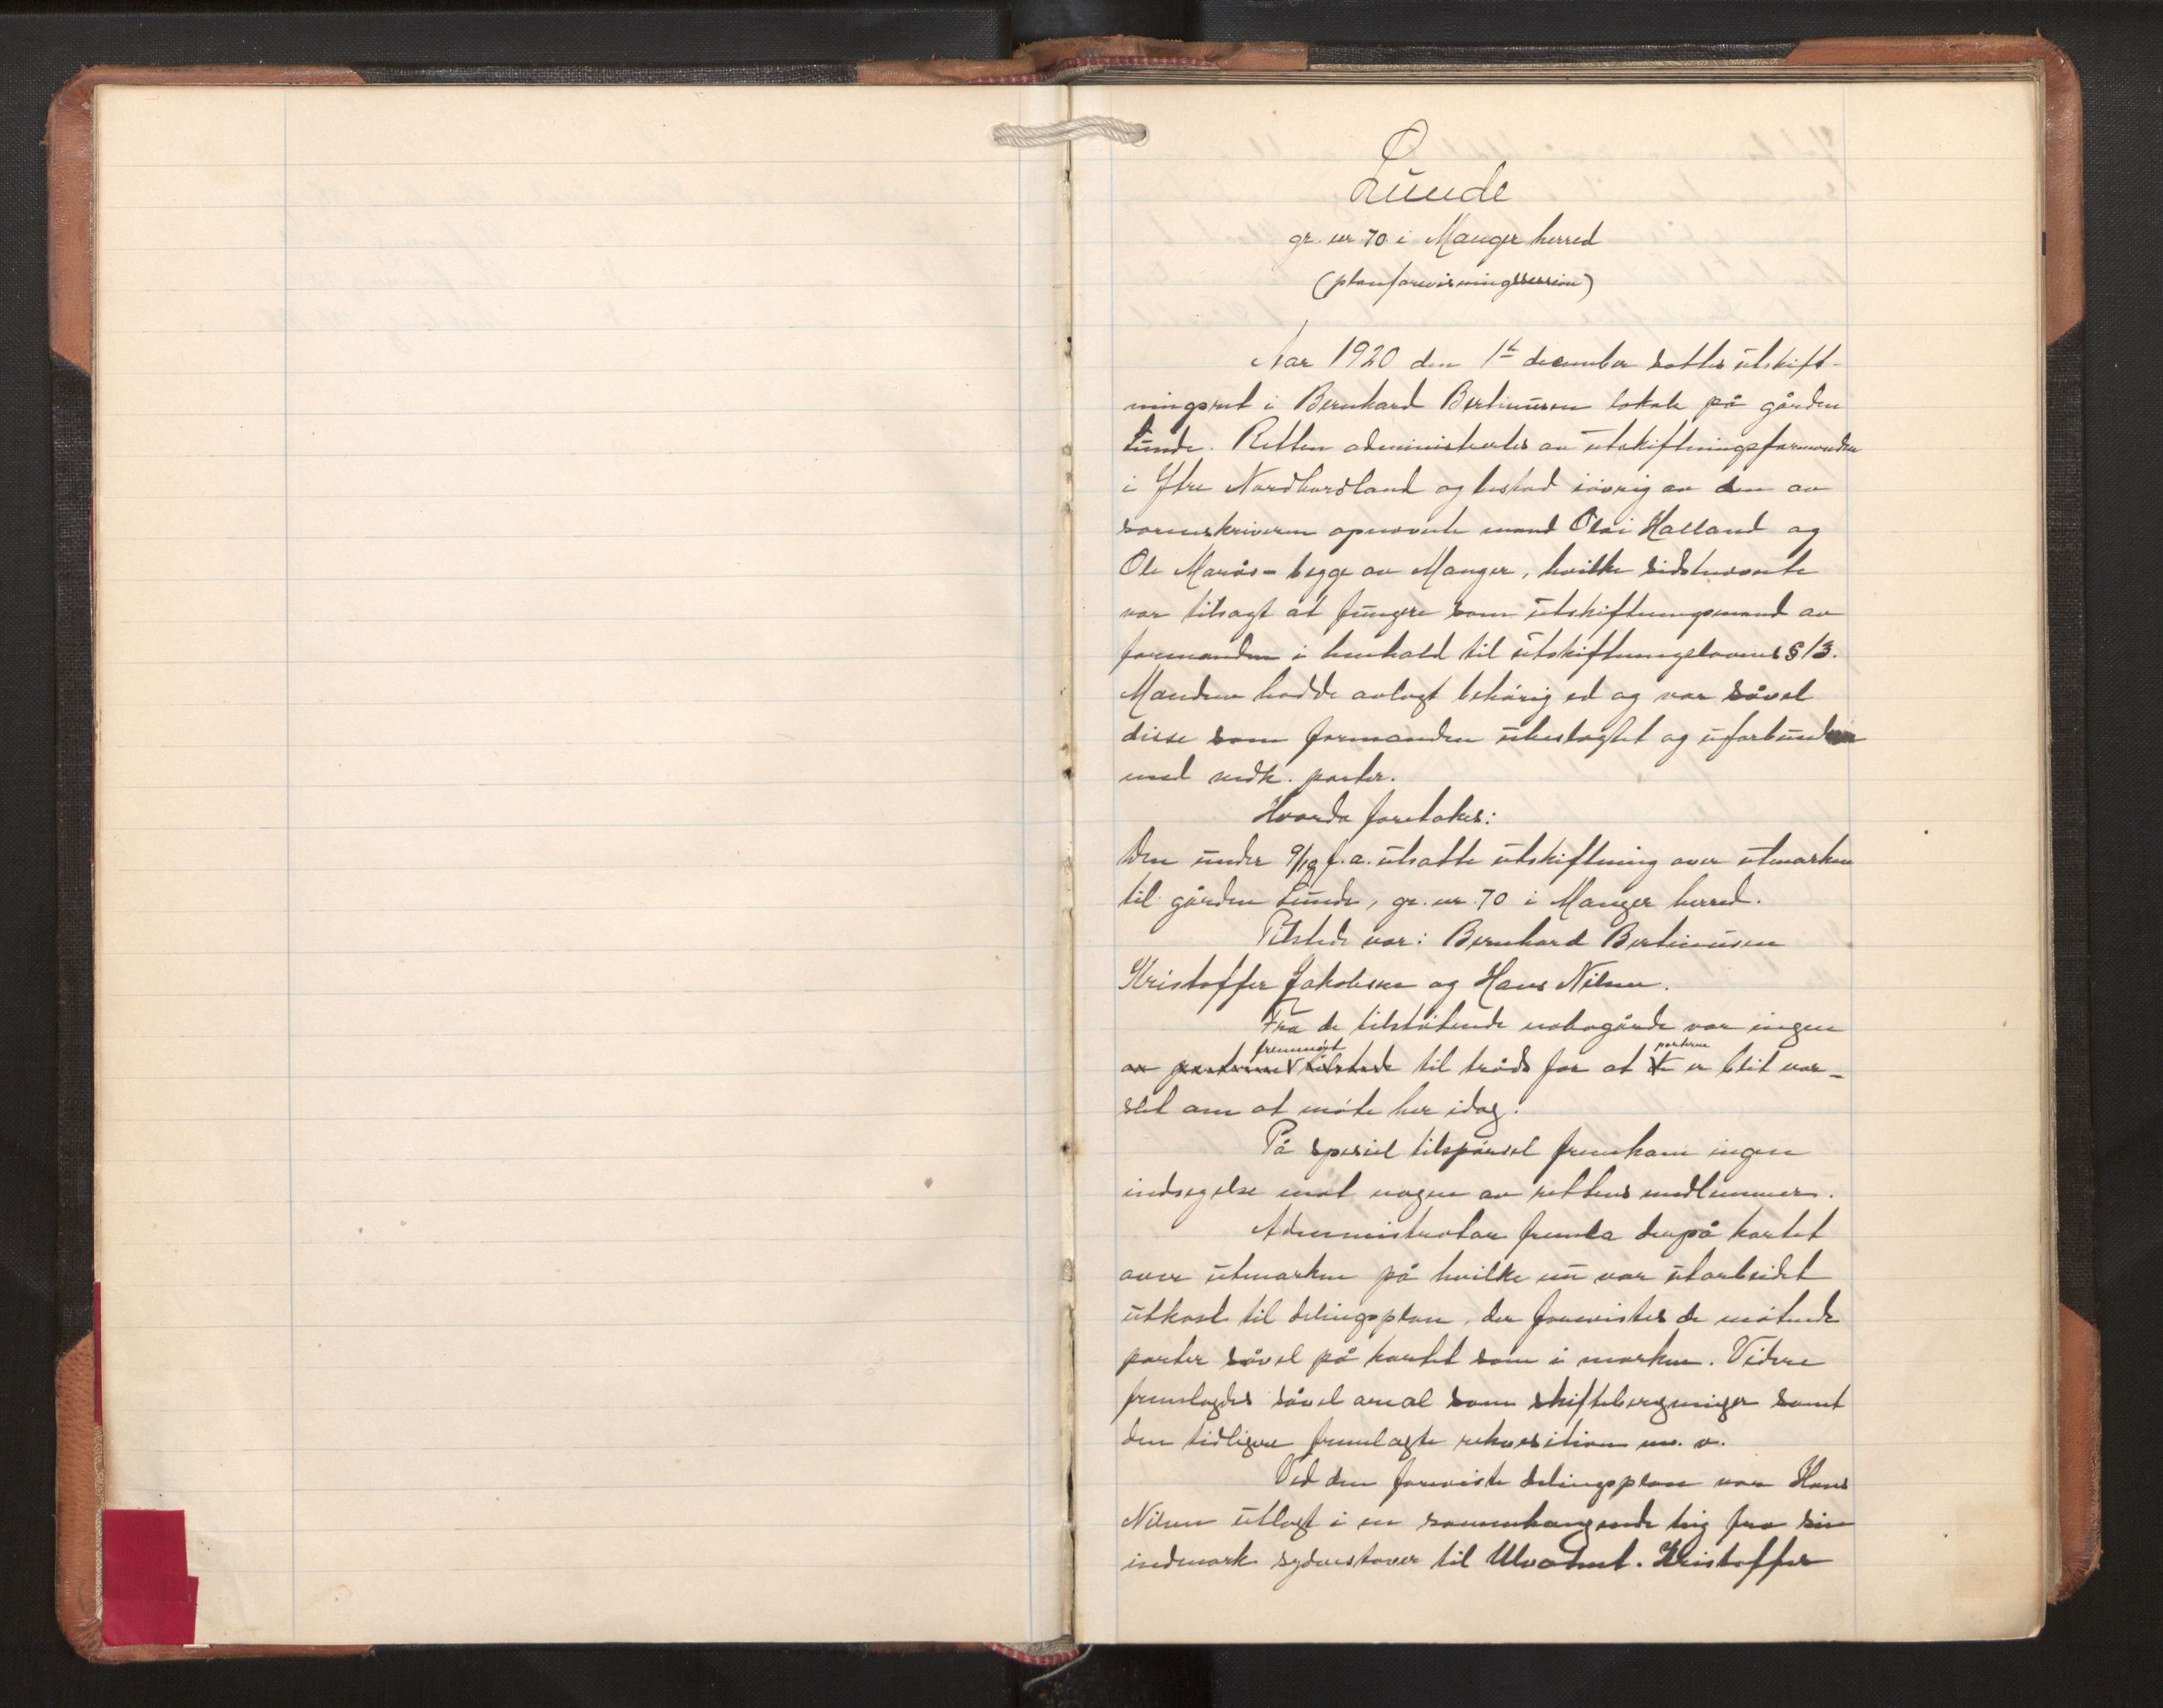 Lunde
gr. nr 70 i Manger herred
(planforevisningssession)
Aar 1920 den 1ste december sattes utskift-
ningsret i Bernhard Bertinusen lokale på gården
Lunde. Retten administrertes av utskiftningsformanden
i Ytre Nordhordland og bestod iøvrig av den av
sorenskriveren opnevnte mand Olai Halland og
Ole Marås - begge av Manger, hvilke sidstnevnte
var tilsagt at fungere som utskiftningsmand av
formanden i henhold til utskiftningslovens § 13.
Mændene hadde avlagt behørig ed og var såvel
disse som formanden ubeslegtet og uforbunden
med vedk. parter.
Hvorda foretokes:
Den under 9/10 f.a. utsatte utskiftning over utmarken
til gården Lunde, gr. nr. 70 i Manger herred.
Tilstede var: Bernhard Bertinusen
Kristoffer Jakobsen og Hans Nilsen.
Fra de tilstøtende nabogårde var ingen
av parterne fremmøt tilstede til tråds for at de parterne er blit var-
slet om at møte her idag.
På spesiel tilspørsel fremkom ingen
indsigelse mot nogen av rettens medlemmer.
Administrator fremla derpå kartet
over utmarken på hvilke nu var utarbeidet
utkast til delingsplan, der forevistes de møtende
parter såvel på kartet som i marken. Videre
fremlagdes såvel areal som skifteberegninger samt
den tidligere fremlagte rekvisition m. v.
Ved den foreviste delingsplan var Hans
Nilsen utlagt i en sammenhængende teig fra sin
indmark sydvestover til Ulvatnet. Kristoffer